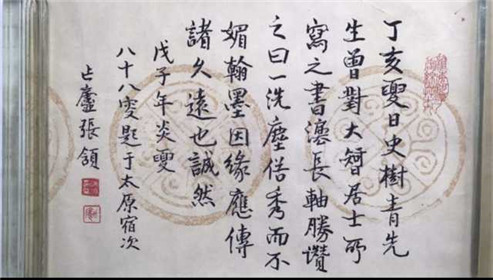 丁亥夏日史樹青先
生曾對大智居士所
寫之書法長軸勝讚
之曰一洗塵俗秀而不
媚翰墨因緣應傳
諸久遠也誠然
戊子年炎夏
八十八叟題于太原宿次
張頷